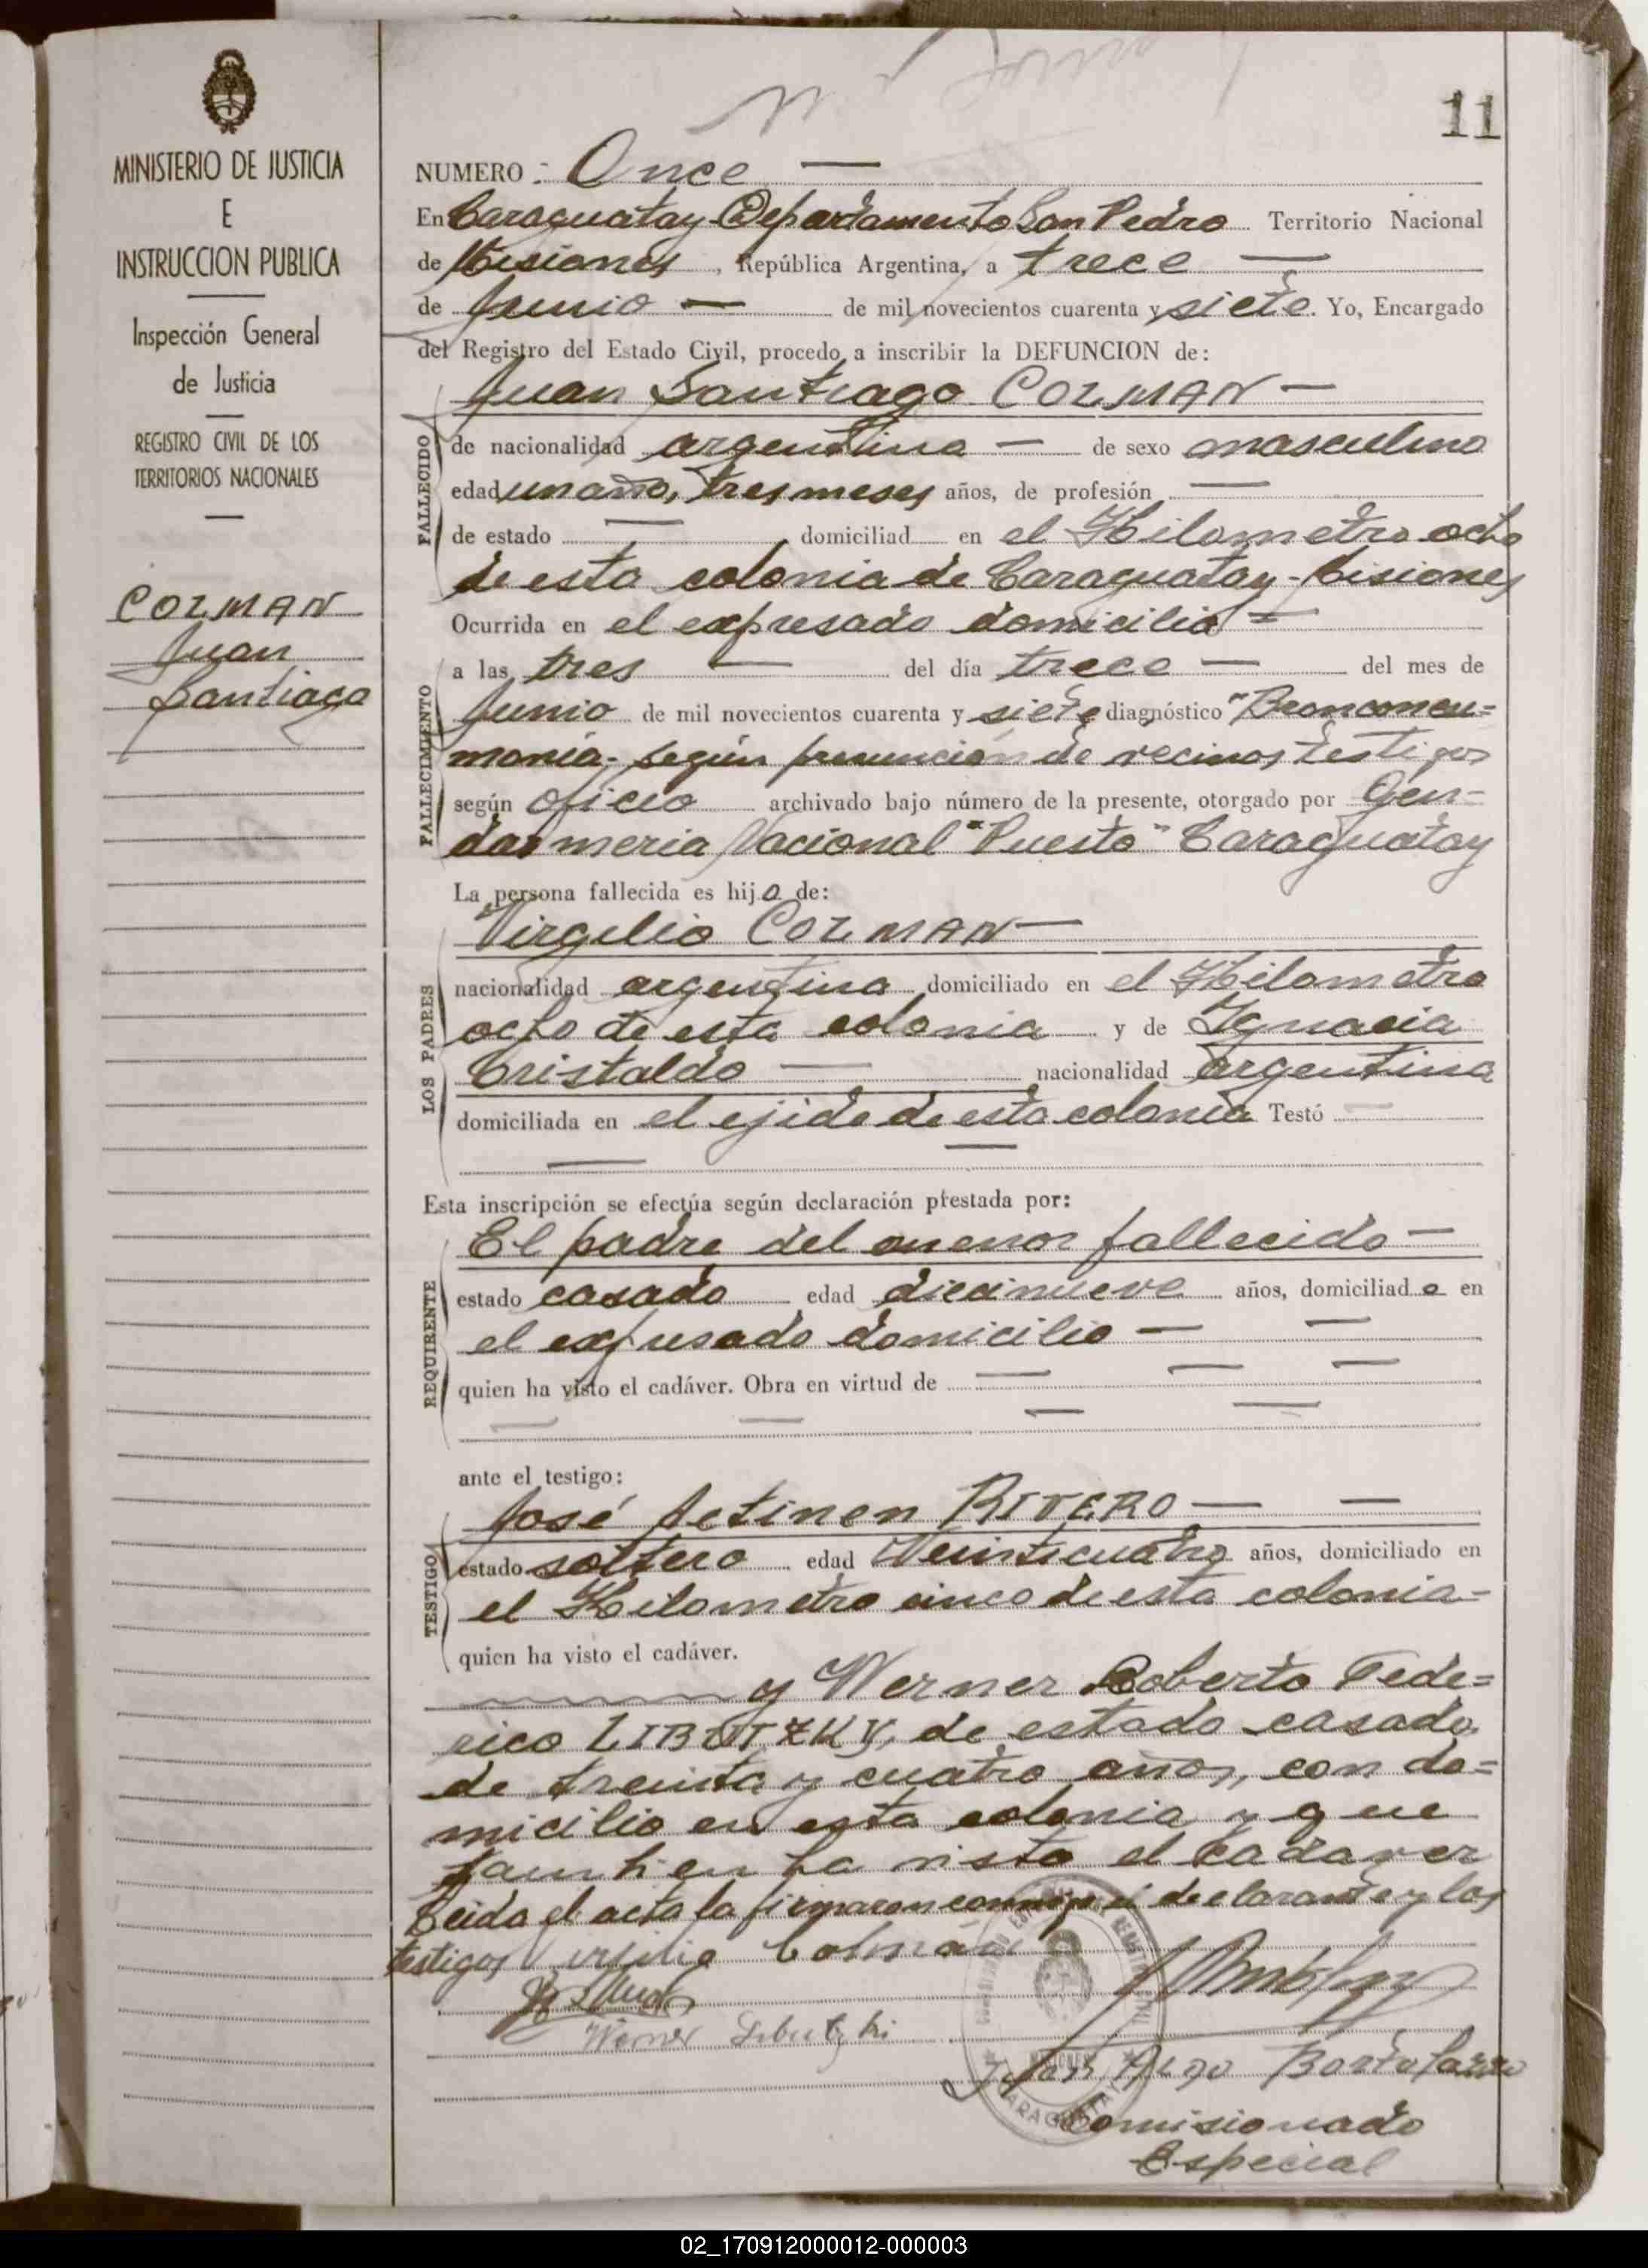 MINISTERIO DE JUSTICIA
E
INSTRUCCION PUBLICA
Inspección General
de Justicia
REGISTRO CIVIL DE LOS
TERRITORIOS NACIONALES
COLMAN
Juan
Santiago
11
NUMERO : Once —
En Caraguatay Departamento San Pedro Territorio Nacional
de Misiones, República Argentina, a trece —
de Junio — de mil novecientos cuarenta y siete. Yo, Encargado
del Registro del Estado Civil, procedo a inscribir la DEFUNCION de:
Juan Santiago COLMAN —
FALLECIDO
de nacionalidad argentina — de sexo masculino
edad un año, tres meses años, de profesión —
de estado — domiciliad en el Kilometro ocho
de esta colonia de Caraguatay - Misiones
Ocurrida en el expresado domicilio =
FALLECIMIENTO
a las tres — del día trece — del mes de
Junio de mil novecientos cuarenta y siete diagnóstico "Bronconeu=
monía- según presunción de vecinos testigos
según oficio archivado bajo número de la presente, otorgado por Gen-
darmeria Nacional "Puesto" Caraguatay
La persona fallecida es hijo de:
LOS PADRES
Virgilio COLMAN —
nacionalidad argentina domiciliado en el Kilometro
ocho de esta colonia y de Ignacia
Cristaldo — nacionalidad argentina
domiciliada en el ejido de esta colonia Testó —
Esta inscripción se efectúa según declaración prestada por:
REQUIRENTE
El padre del menor fallecido —
estado casado edad diecinueve años, domiciliado en
el expresado domicilio — —
quien ha visto el cadáver. Obra en virtud de — — —
ante el testigo:
TESTIGO
José RIVERO — —
estado soltero edad Veinticuatro años, domiciliado en
el Kilometro cinco de esta colonia =
quien ha visto el cadáver.
y Werner Roberto Fede=
rico LIBUTZKY, de estado casado,
de treinta y cuatro años, con do=
micilio en esta colonia y que
tambien ha visto el cadaver
Leida el acta la firmaron conmigo el declarante y los
testigos Virjilio Colmán
Werner Libutzki
Comisionado
Especial
02_170912000012-000003